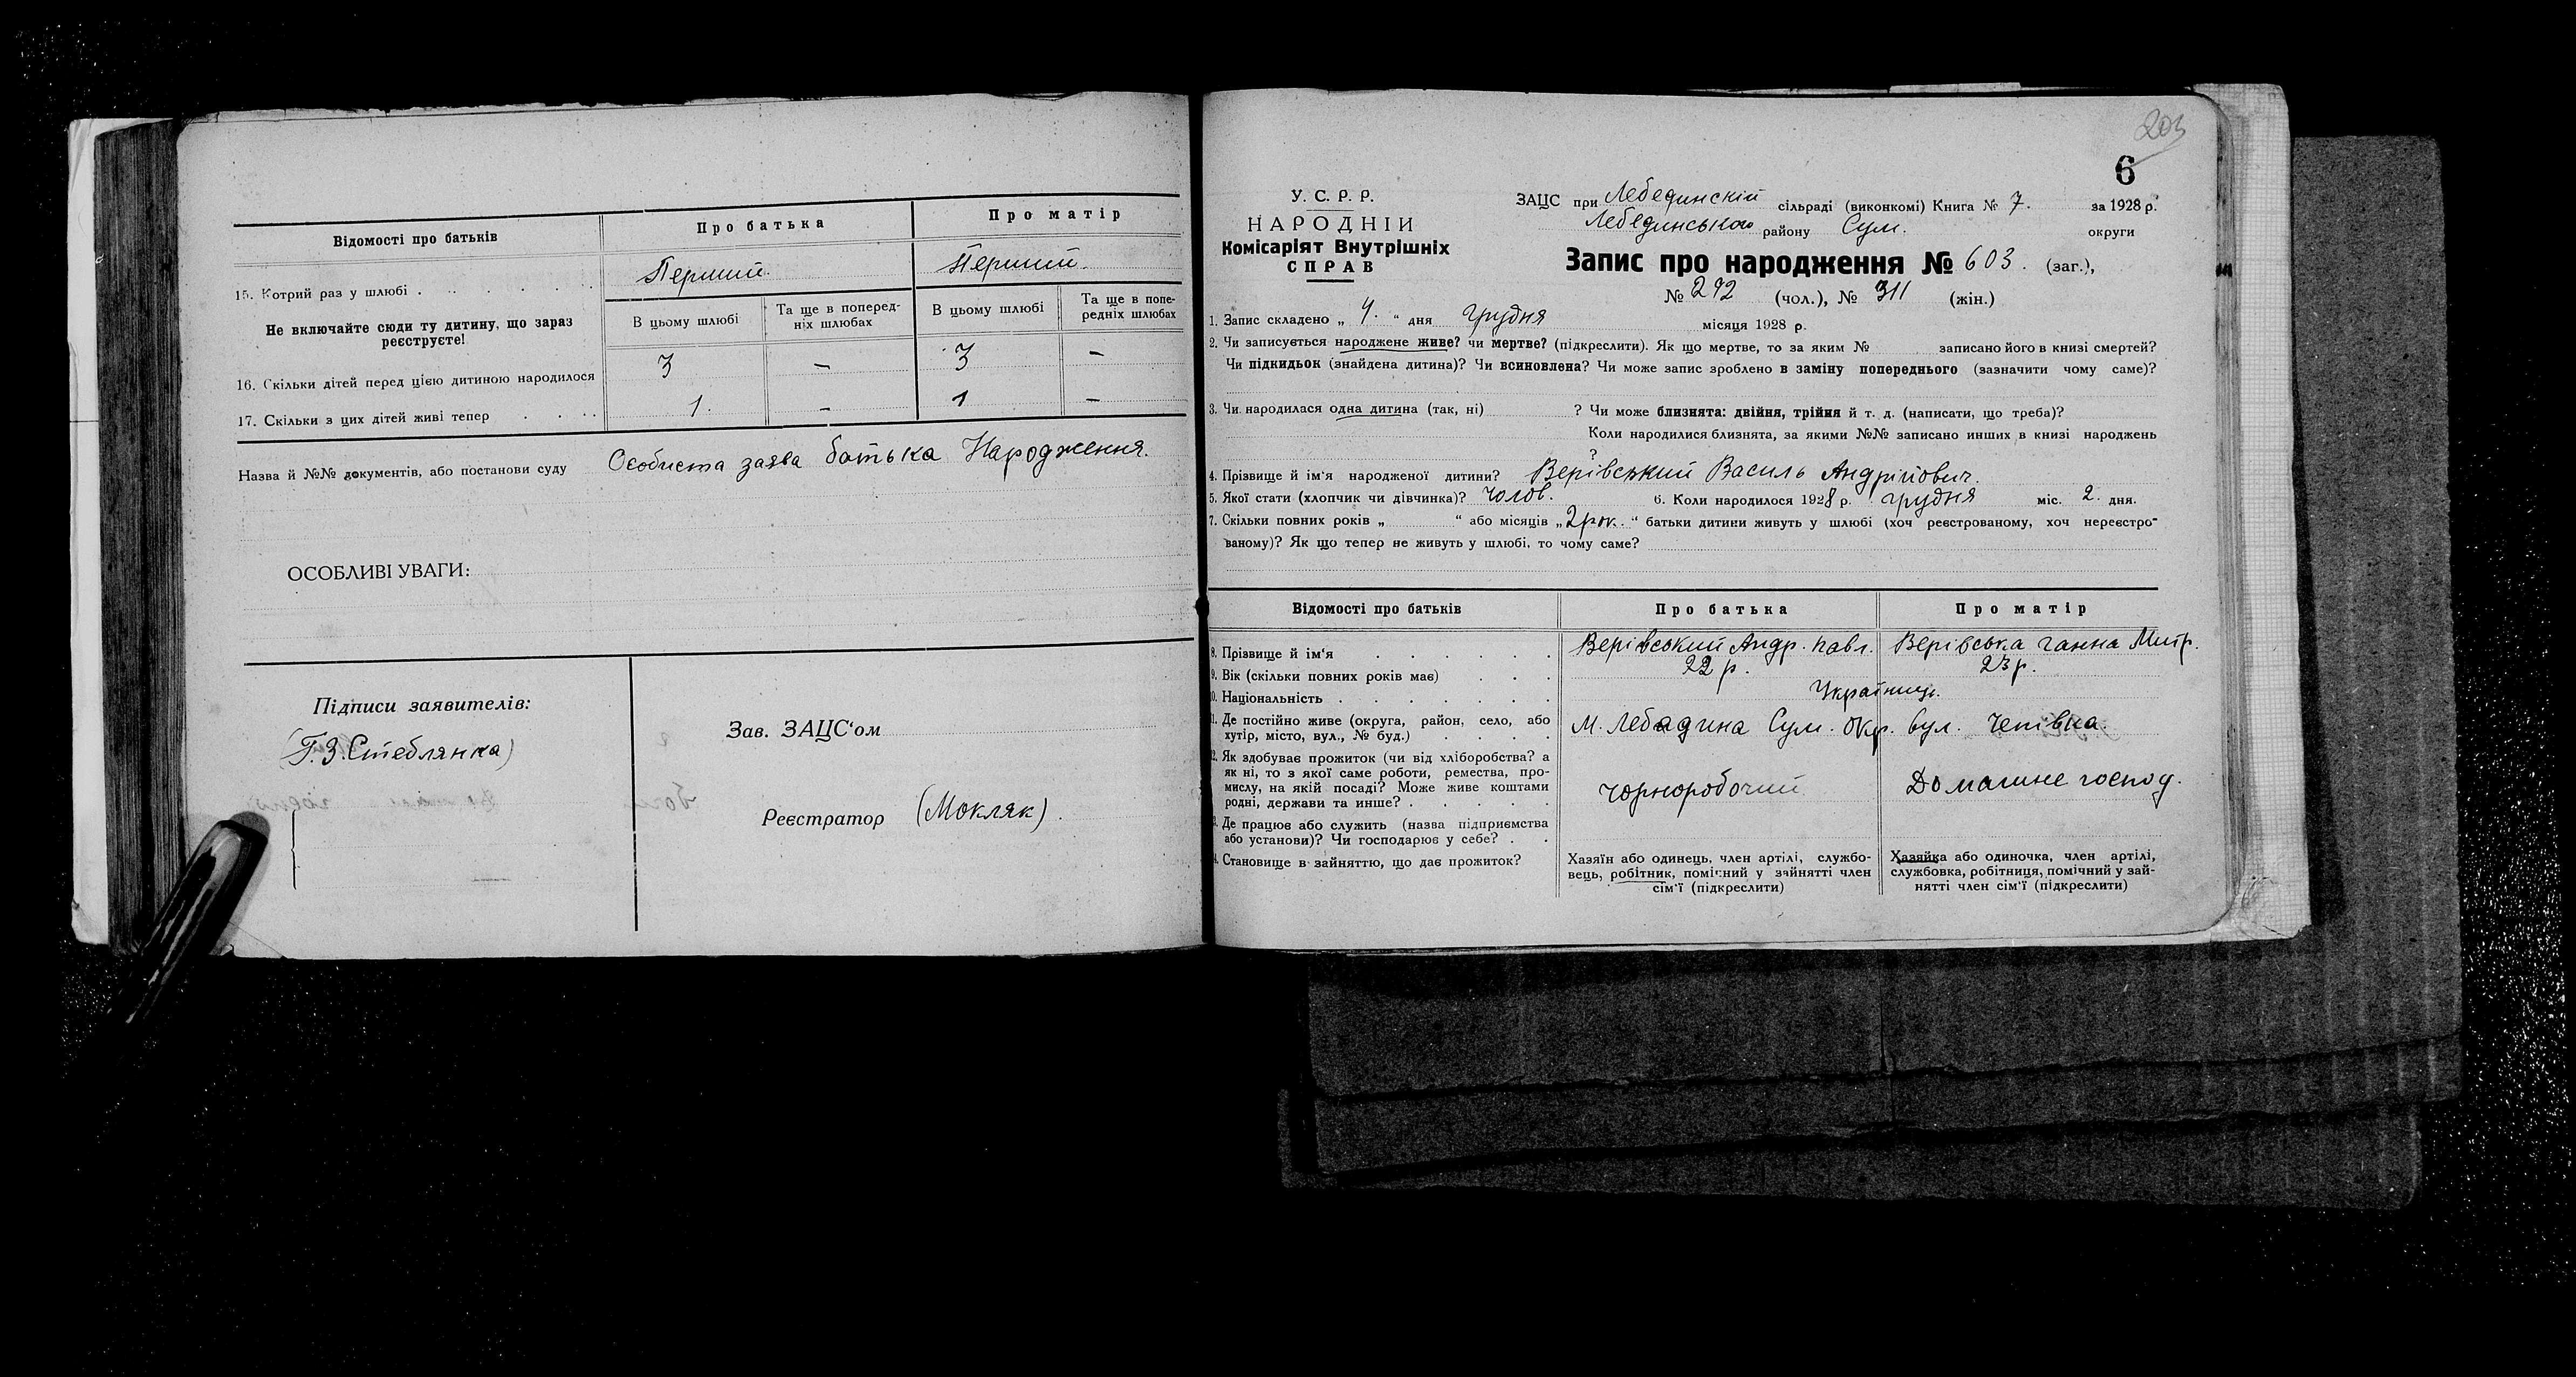 Відомості про батьків
Про батька
Про матір
15. Котрий раз у шлюбі . . . . . . .
Перший.
Перший.
Не включайте сюди ту дитину, що зараз
реєструєте!
В цьому шлюбі
Та ще в поперед-
ніх шлюбах
В цьому шлюбі
Та ще в попе-
редніх шлюбах
16. Скільки дітей перед цією дитиною народилося
3 — 3 —
17. Скільки з цих дітей живі тепер . . . .
1. — 1 —
Назва й №№ документів, або постанови суду Особиста заява батька Народження.
ОСОБЛИВІ УВАГИ:
Підписи заявителів:
(Г.З.Стеблянка)
Зав. ЗАЦС‘ом
Реєстратор (Мокляк).
203
6
У. С. Р. Р.
НАРОДНІЙ
Комісаріят Внутрішніх
СПРАВ
ЗАЦС при Лебединскій сільраді (виконкомі) Книга № 7. за 1928 р.
Лебединського району Сум. округи
Запис про народження № 603. (заг.),
№ 292 (чол.), № 311 (жін.)
1. Запис складено „ 4. “ дня Грудня місяця 1928 р.
2. Чи записується народжене живе? чи мертве? (підкреслити). Як що мертве, то за яким № записано його в книзі смертей?
Чи підкидьок (знайдена дитина)? Чи всиновлена? Чи може запис зроблено в заміну попереднього (зазначити чому саме)?
3. Чи народилася одна дитина (так, ні) ? Чи може близнята: двійня, трійня й т. д. (написати, що треба)?
Коли народилися близнята, за якими №№ записано инших в книзі народжень
?
4. Прізвище й ім‘я народженої дитини? Верівський Василь Андрійович.
5. Якої стати (хлопчик чи дівчинка)? чолов. 6. Коли народилося 1928 р. грудня міс. 2. дня.
7. Скільки повних років „ “ або місяців „ 2 рок. “ батьки дитини живуть у шлюбі (хоч реєстрованому, хоч нереєстро-
ваному)? Як що тепер не живуть у шлюбі, то чому саме?
Відомості про батьків
Про батька
Про матір
8. Прізвище й ім‘я . . . . . .
Верівський Андр. Павл.
Верівська Ганна Митр.
9. Вік (скільки повних років має) . . .
22 р.
23 р.
10. Національність . . . . . . .
Українці.
11. Де постійно живе (округа, район, село, або
хутір, місто, вул., № буд.) . . . .
М. Лебедина Сум. Окр. вул.
12. Як здобуває прожиток (чи від хліборобства? а
як ні, то з якої саме роботи, ремества, про-
мислу, на якій посаді? Може живе коштами
родні, держави та инше? . . . . .
Чорноробочий
Домашне господ.
13. Де працює або служить (назва підприємства
або установи)? Чи господарює у себе? . .
14. Становище в зайняттю, що дає прожиток?
Хазяїн або одинець, член артілі, службо-
вець, робітник, помічний у зайнятті член
сім‘ї (підкреслити)
Хазяйка або одиночка, член артілі,
службовка, робітниця, помічний у зай-
нятті член сім‘ї (підкреслити)